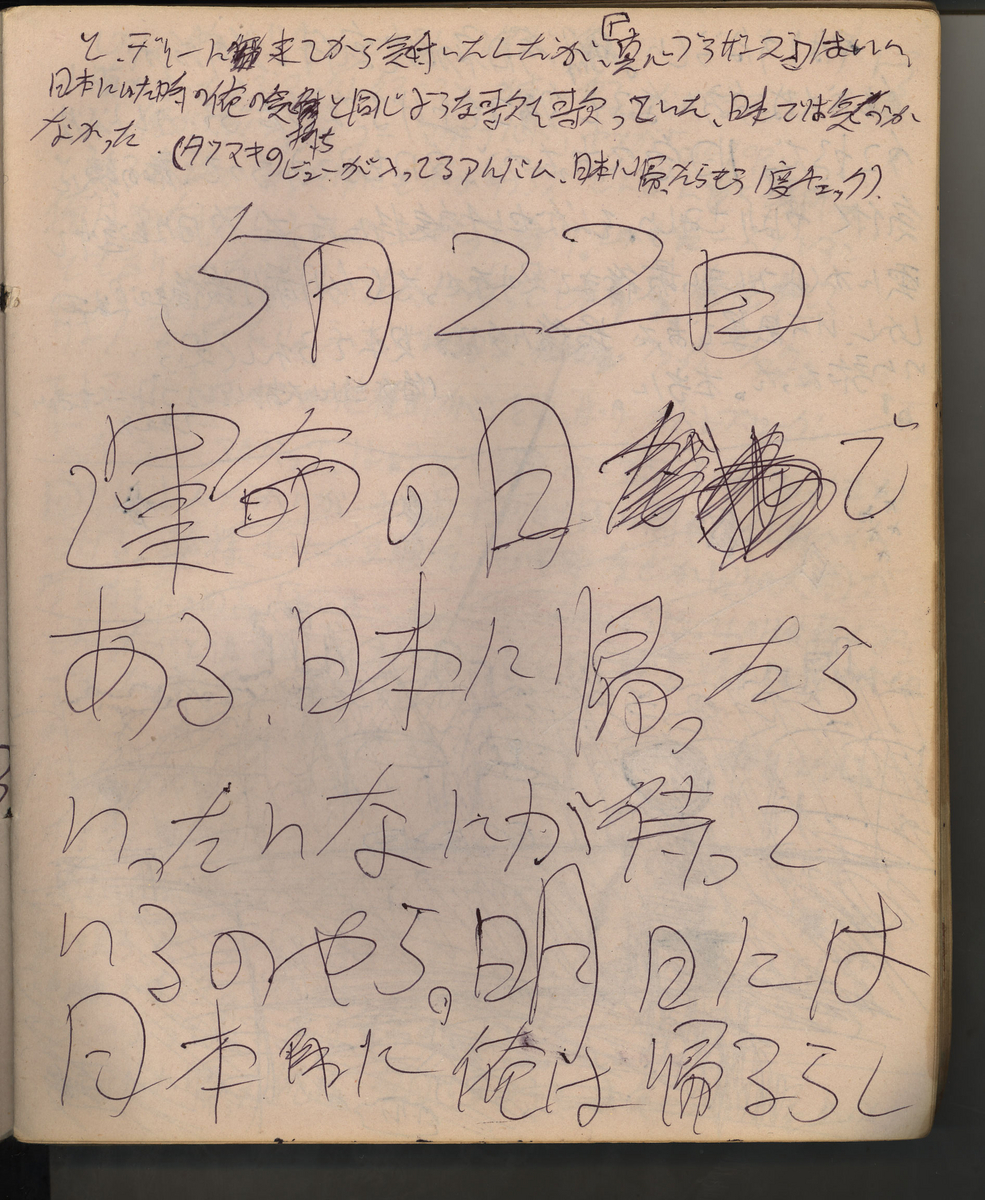 と、デリーに来てから気付いたんだが、「真心ブラザーズ」はいい、
日本にいた時の俺の気持ちと同じような歌を歌っていた、日本では気づか
なかった。(タツマキのビューが入ってるアルバム、日本に帰ったらもう1度チェック)、
5月22日
運命の日で
ある、日本に帰ったら
いったいなにが待って
いるのやら。明日には
日本に俺は帰るらし